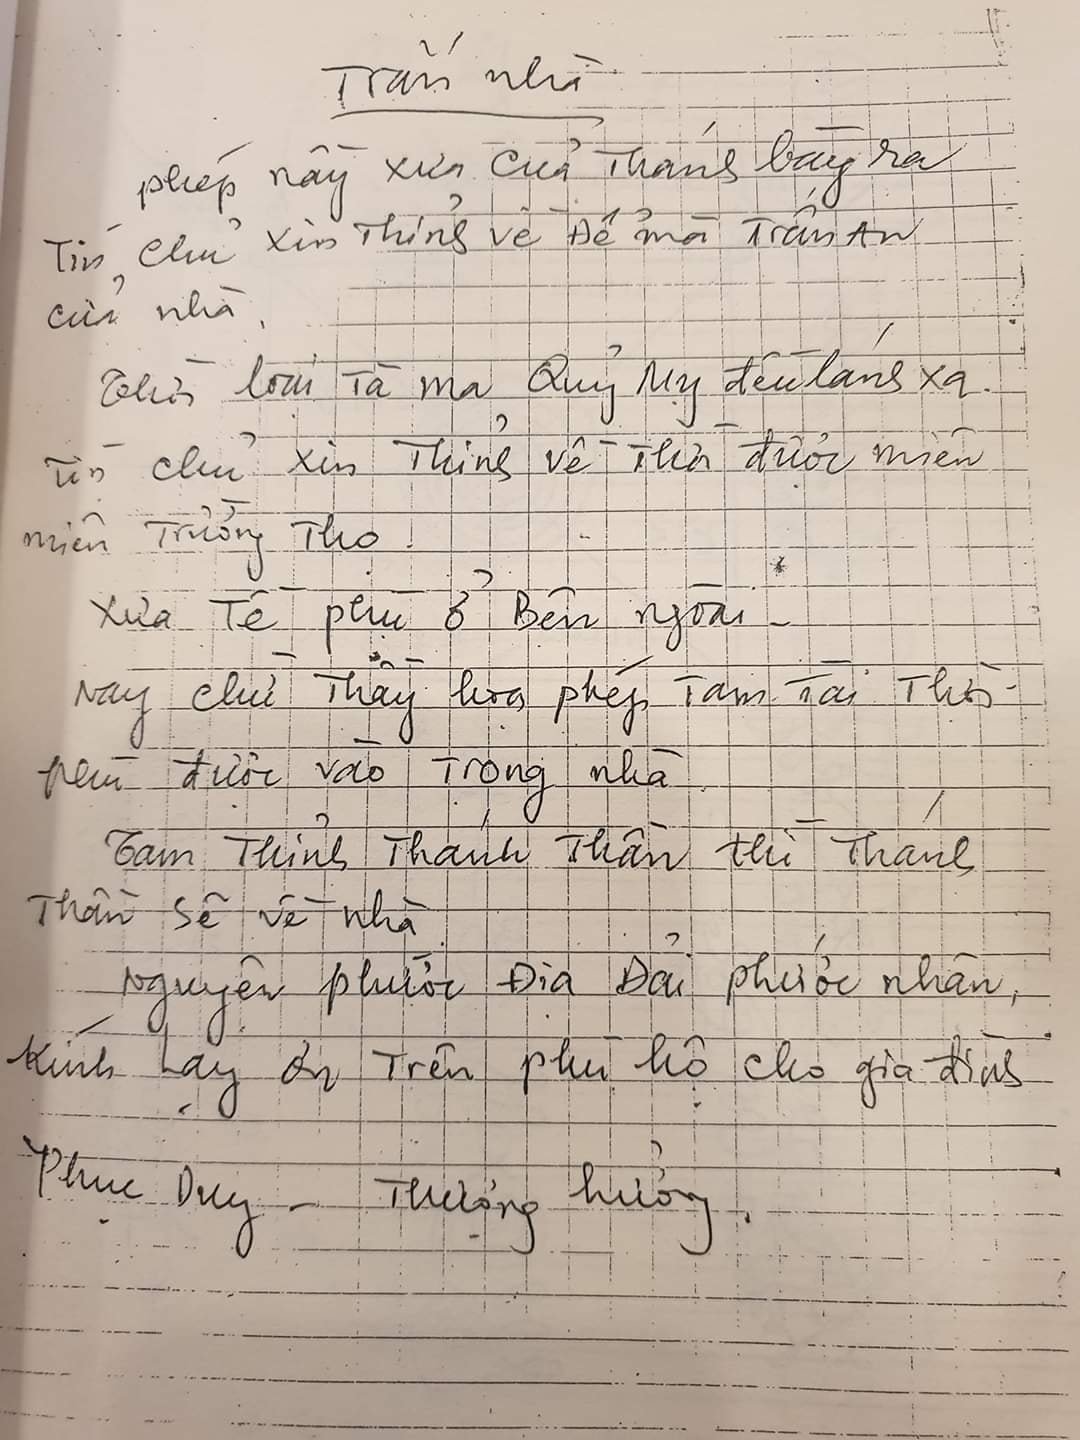 Trấn nhà
phép nầy xưa của Thánh bày ra
Tín chủ xin Thỉnh về Để mà Trấn An
cửa nhà.
Thời loài Tà ma Quỷ Mỵ đều lánh xa.
Tín chủ xin Thỉnh về Thờ được miên
miên Trường Thọ.
Xưa Tế phù ở Bên ngoài -
Nay chư Thầy họa phép Tam Tài Thời
phù được vào Trong nhà
Tâm Thỉnh Thánh Thần thì Thánh
Thần sẽ về nhà
Nguyên phước Địa Đại phước nhân,
Kính Lạy ơn Trên phù hộ cho gia đình
Phục Duy - Thượng hưởng.